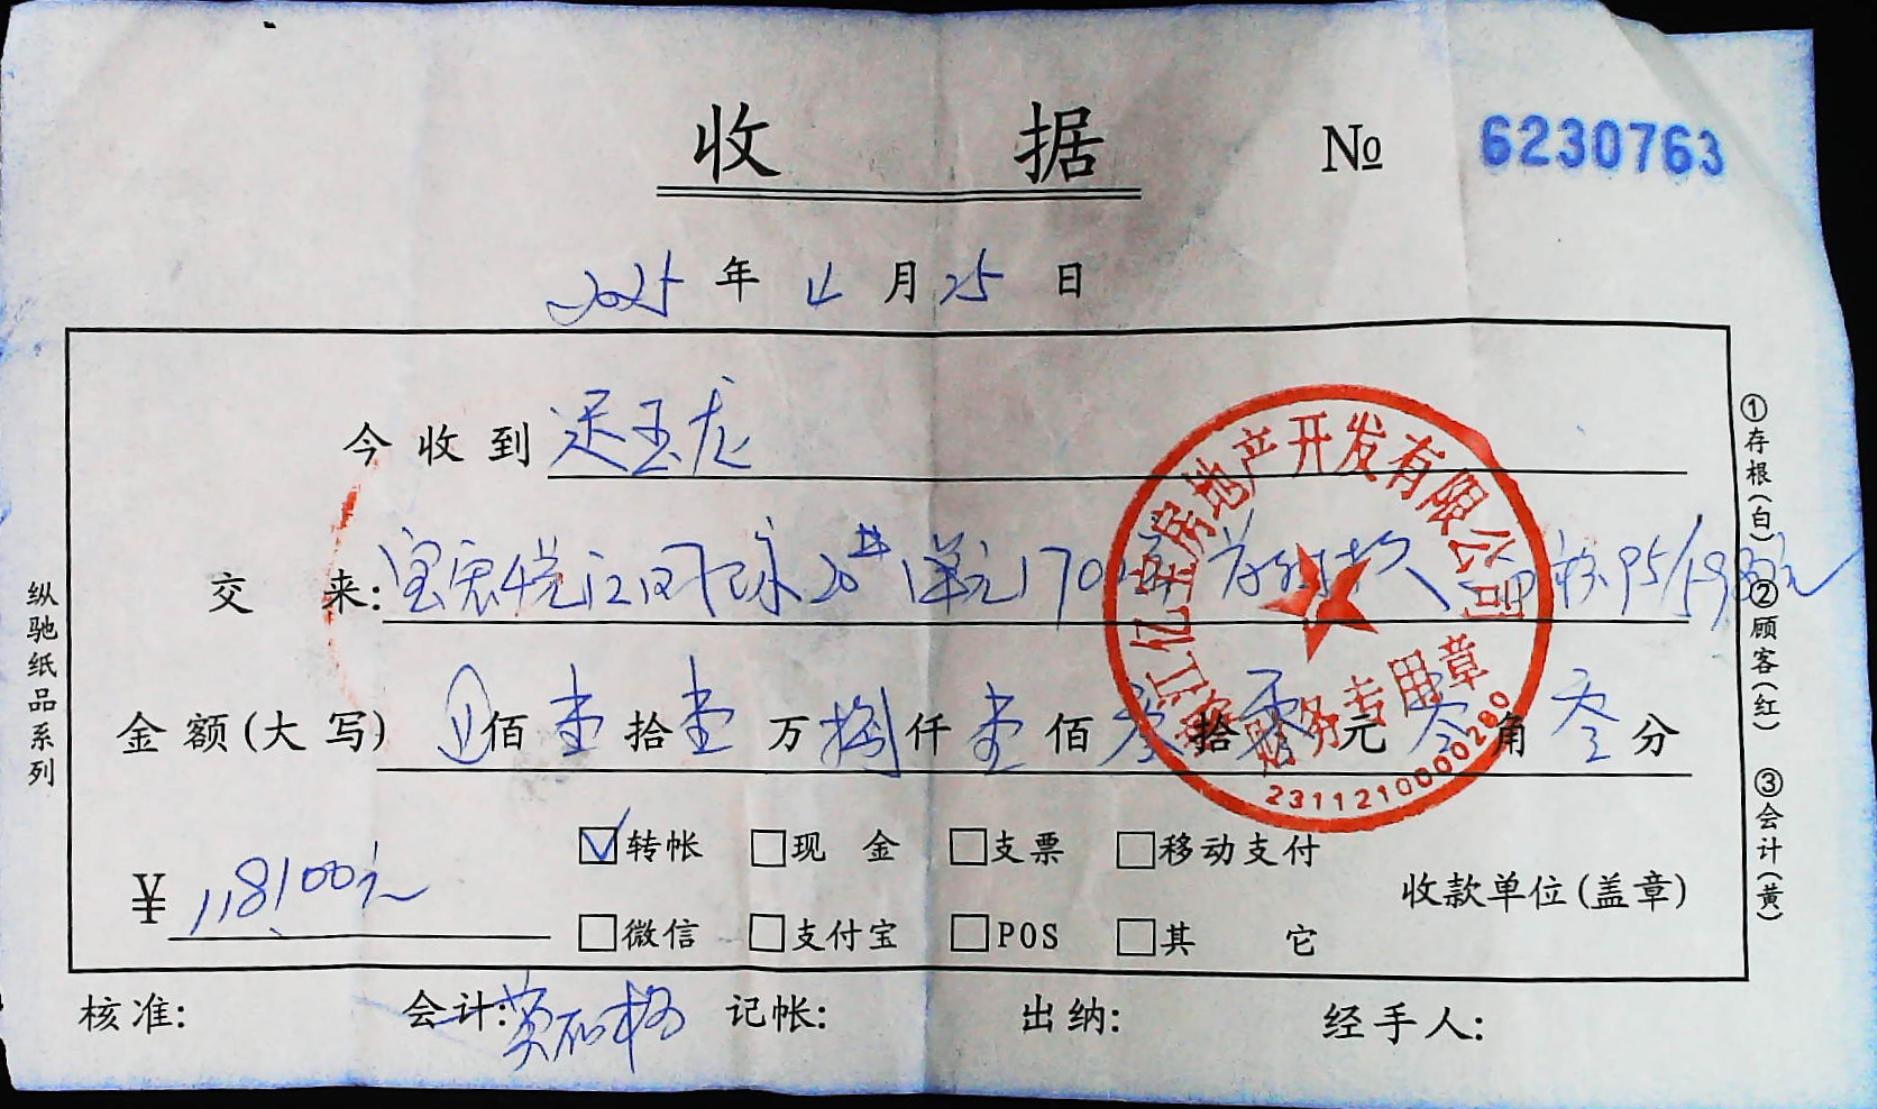 收 据 № 6230763
2025 年 4 月 25 日
今收到 玉龙
交 来: 江 20# 1单元1701
金额(大写) 佰 壹 拾 壹 万 捌 仟 壹 佰 零 拾 零 元 零 角 零 分
¥ 118100元
☑转帐 □现 金 □支票 □移动支付
□微信 □支付宝 □POS □其 它
收款单位(盖章)
核准: 会计: 记帐: 出纳: 经手人:
纵驰纸品系列
①存根(白) ②顾客(红) ③会计(黄)
江亿宝房地产开发有限公司
财务专用章
2311210000280